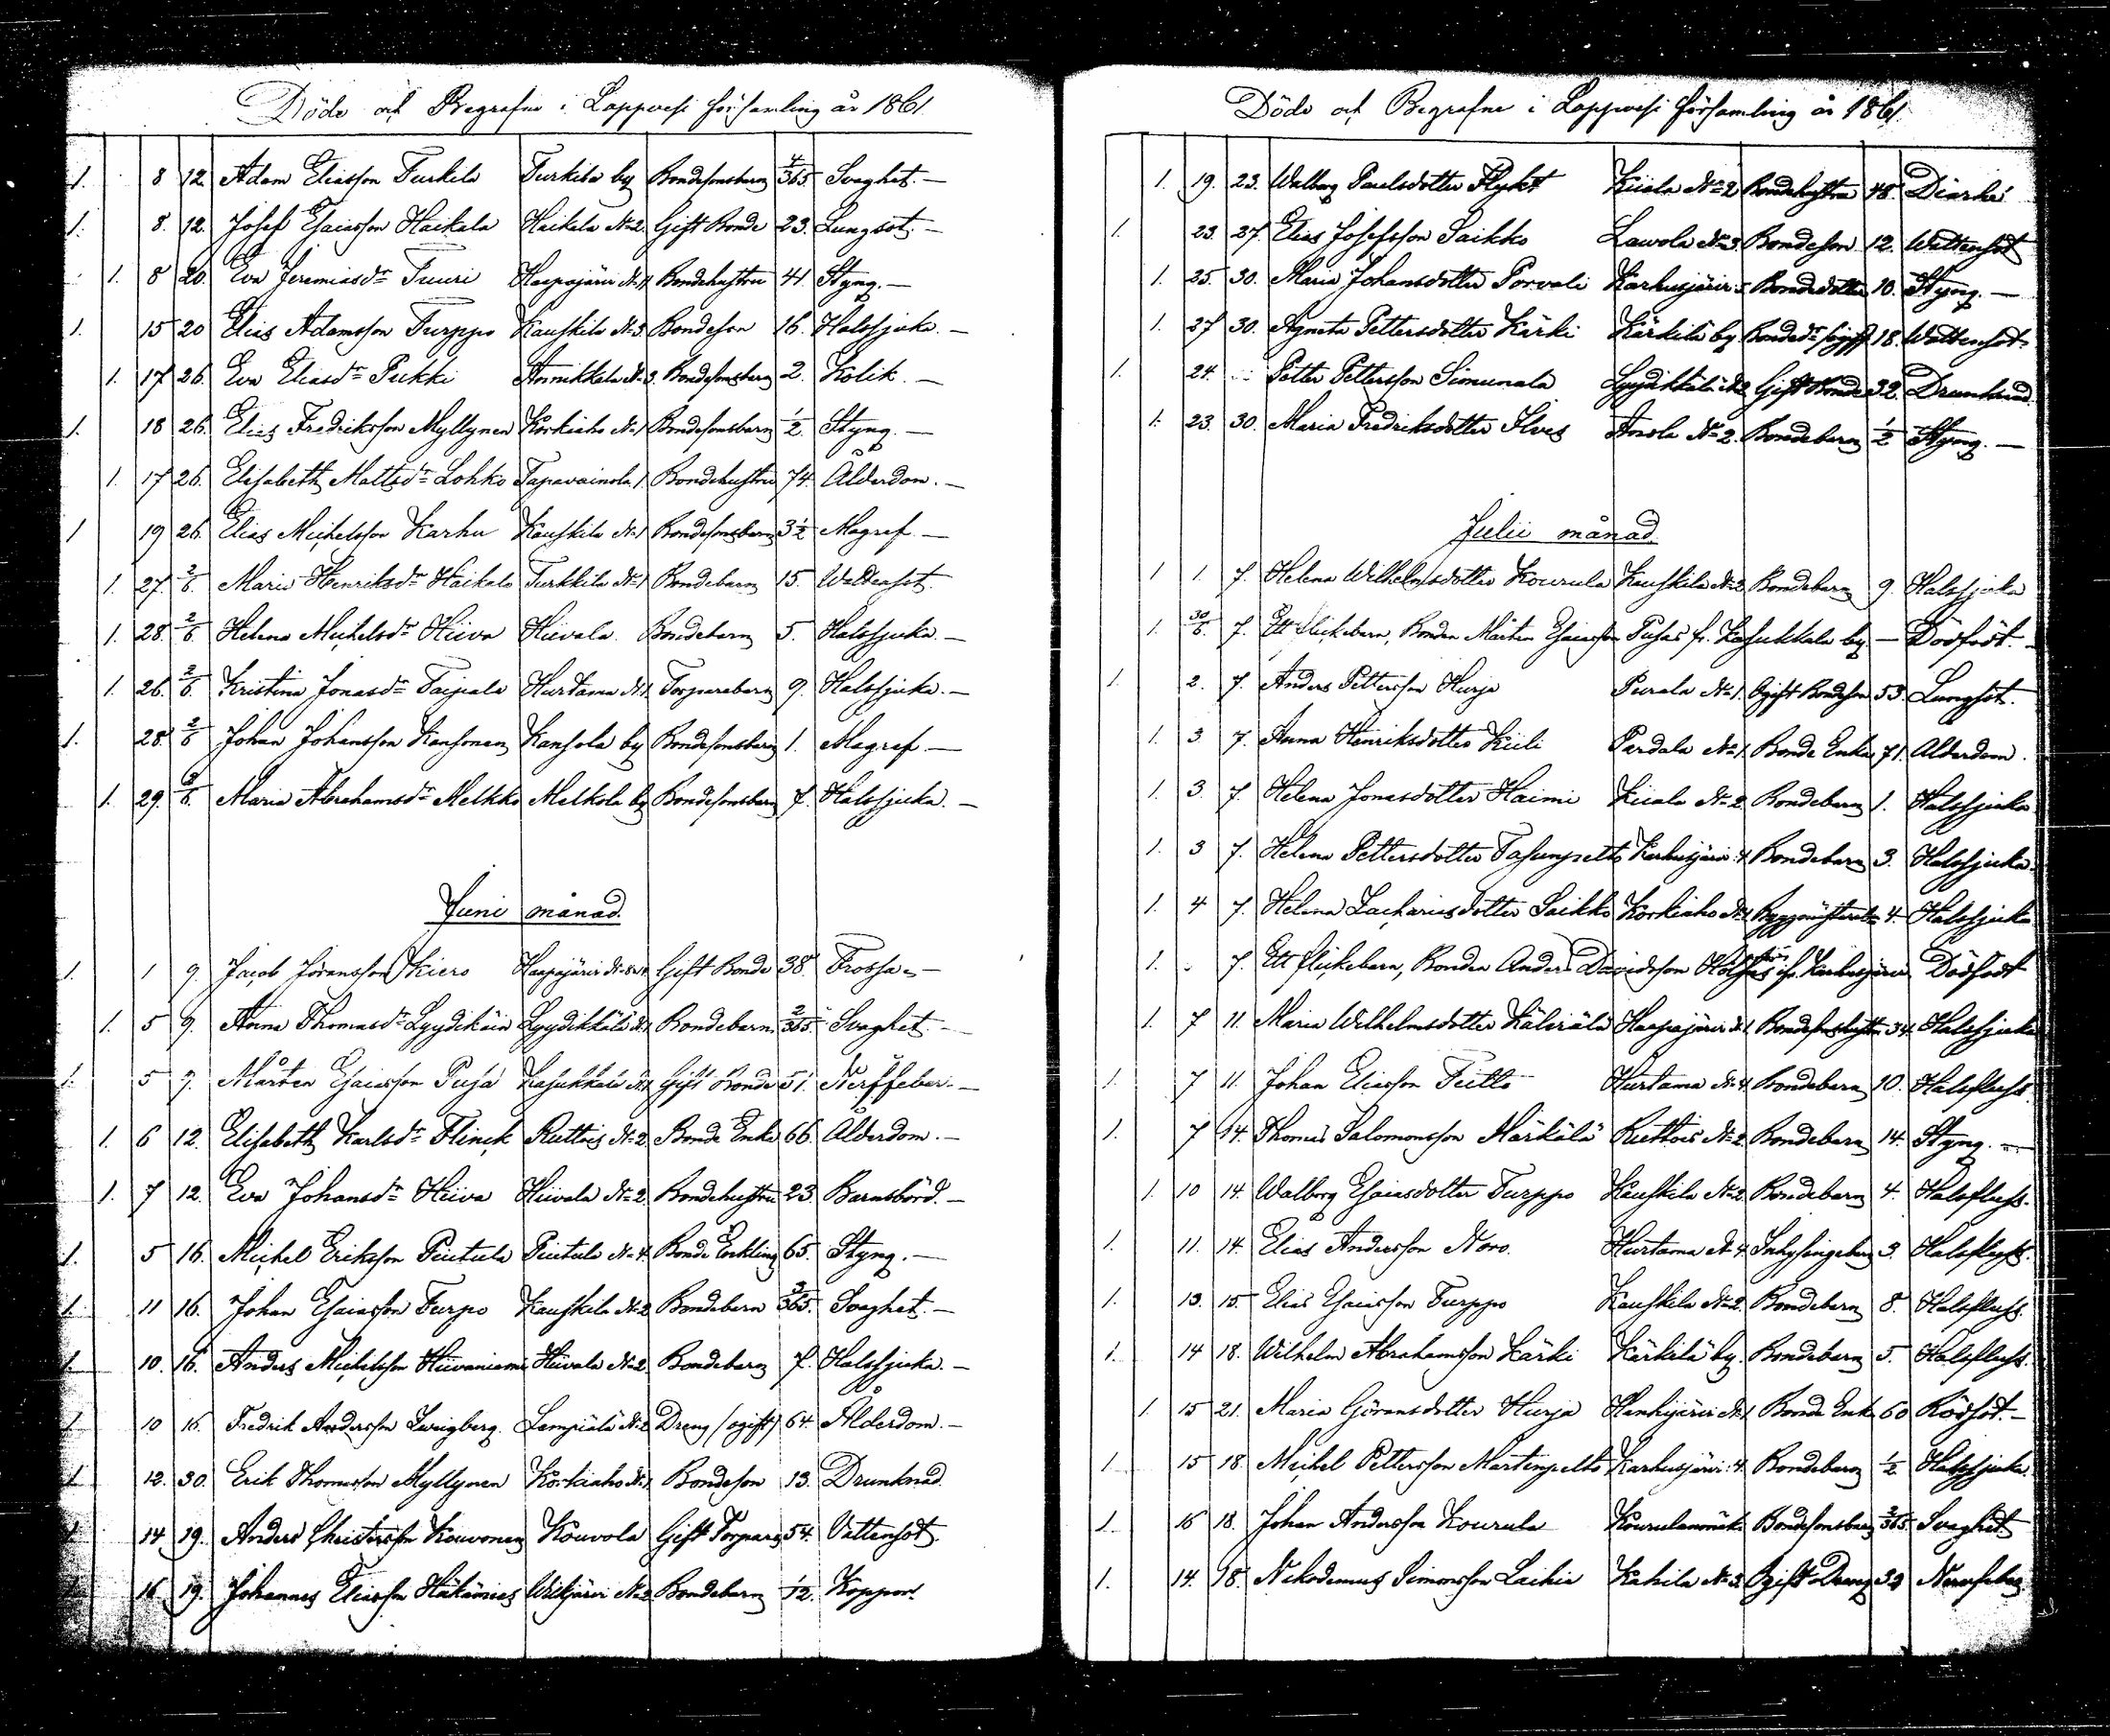 Döde och Begrafne i Lappvesi församling år 1861.
1. 8 12. Adam Eliasson Turkila Turkila by Bondesonsbarn 4/365. Svaghet. —
1. 8. 12. Josef Esaiasson Haikala Haikala No 2. Gift Bonde 23. Lungsot. —
1. 8 20. Eva Jeremiasdr Tuuri Haapajärvi No 11 Bondehustru 41. Styng. —
1. 15 20 Elias Adamsson Turppo Kauskila No 3 Bondeson 16. Halssjuka. —
1. 17 26. Eva Eliasdr Pukki Annikkala No 3. Bondesonsbarn 2. Kolik. —
1. 18 26. Elias Fredriksson Myllynen Korkiaho No 1 Bondesonsbarn 1/2. Styng. —
1. 17 26. Elisabeth Mattsdr Lohko Tapavainola 1 Bondehustru 74. Ålderdom. —
1 19 26. Elias Michelsson Karhu Kauskila No 1 Bondesonsbarn 3 1/2 Magref. —
1. 27. 2/6. Maria Henriksdr Haikala Turkkila No 1 Bondebarn 15. Wattensot.
1. 28. 2/6. Helena Michelsdr Hiiva Hiivala. Bondebarn 5. Halssjuka. —
1. 26. 2/6. Kristina Jonasdr Taipale Hurtama No 1. Torparebarn 9. Halssjuka. —
1. 28. 2/6 Johan Johansson Kansonen Kansola by Bondesonsbarn 1. Magref. —
1. 29. 2/6. Maria Abrahamsdr Melkko Melkola by Bondesonsbarn 7. Halssjuka. —
Juni månad.
1. 1 9. Jacob Jöransson Kiero Haapajärvi Gift Bonde 38. Frossa. —
1. 5 9. Anna Thomasdr Lyydikäin Lyydikkälä No 1 Bondebarn 2/365. Svaghet. —
1. 5 9. Mårten Esaiasson Pusa Kasukkala No 1 Gift Bonde 51. Nerffeber. —
1. 6 12. Elisabeth Karlsdr Flinck Ruttois No 2. Bonde Enka 66. Ålderdom. —
1. 7 12. Eva Johansdr Hiiva Hiivala No 2. Bondehustru 23. Barnsbörd. —
1. 5 16. Michel Eriksson Piutula Piutula No 4. Bonde Enkling 65. Styng. —
1. 11 16. Johan Esaiasson Turpo Kauskila No 2. Bondebarn 3/365. Svaghet. —
1. 10. 16. Anders Michelsson Hiivaniemi Hiivala No 2. Bondebarn 7. Halssjuka. —
1 10 16. Fredrik Andersson Lempiälä No 2 Dreng (ogift) 64. Ålderdom. —
1 12. 30. Erik Thomasson Myllynen Korkiaho No 1. Bondeson 13. Drunknad.
1 14 19. Anders Christersson Kouvonen Kouvola Gift Torpare 54. Vattensot.
16 19. Johannes Eliasson Häkämies Wilkjärvi No 2 Bondebarn 1/2. Koppor.
Döde och Begrafne i Lappvesi församling år 1861
1. 19. 23. Walborg Paulsdotter Flykt Kiiala No 2 Bondehustru 48. Diarhé
1. 23. 27. Elias Josefsson Saikko Lavola No 3. Bondeson 12. Wattensot
1. 25. 30. Maria Johansdotter Porvali Karhusjärvi 5 Bondedotter 10. Styng. —
1. 27 30. Agneta Pettersdotter Kärki Kärkilä by Bondedr (ogift) 18. Wattensot.
1. 24. Petter Pettersson Simunala Lyydikkälä No 2 Gift Bonde 32. Drunknad.
1. 23. 30. Maria Fredriksdotter Ilves Anola No 2. Bondebarn 1/2 Styng. —
Julii månad.
1 1. 7. Helena Wilhelmsdotter Kourula Kauskila No 2 Bondebarn 9. Halssjuka
1. 30/6. 7. Ett flickebarn, Bonden Mårten Esaiasson Pusas fr. Kasukkala by — Dödfödt. —
1. 2. 7. Anders Pettersson Hurja Purala No 1. Ogift Bondeson 53. Lungsot.
1. 3 7. Anna Henriksdotter Kiili Partala No 1. Bonde Enka 71. Alderdom.
1. 3. 7. Helena Jonasdotter Haimi Kiiala No 2. Bondebarn 1. Halssjuka
1. 3 7. Helena Pettersdotter Tasunpelto Karhusjärvi 4. Bondebarn 3. Halssjuka.
1. 4 7. Helena Zachariasdotter Saikko Korkiaho No 1 4. Halssjuka
1. 7. Ett flickebarn, Bonden Anders Davidsson fr. Karhusjärvi Dödfödt
1. 7 11. Maria Wilhelmsdotter Kälviälä Haapajärvi No 1. Bondesonshustru 34. Halssjuka
1. 7 11. Johan Eliasson Tietto Hurtama No 4. Bondebarn 10. Halsfluss.
1. 7 14. Thomas Salomonsson Märkälä Ruttois No 2. Bondebarn 14. Styng. —
1. 10 14. Walborg Esaiasdotter Turppo Kauskila No 2. Bondebarn 4. Halsfluss.
1. 11. 14. Elias Andersson Noro. Hurtama No 4. Inhysingebarn 3. Halsfluss.
1. 13. 15. Elias Esaiasson Turppo Kauskila No 2. Bondebarn 8. Halsfluss.
1. 14 18. Wilhelm Abrahamsson Kärki Kärkilä by. Bondebarn 5. Halsfluss.
1. 15 21. Maria Göransdotter Hurja Hanhijärvi No 1 Bonde Enk. 60 Rödsot. —
1 15 18. Michel Pettersson Martinpelto Karhusjärvi 4. Bondebarn 1/2 Halssjuka.
1. 16 18. Johan Andersson Kourula Kourulanmäki Bondesonsbarn 3/365. Svaghet.
1. 14. 18. Nikodemus Simonsson Laihia Kahila No 3. Ogift Dreng 32 Nervfeber